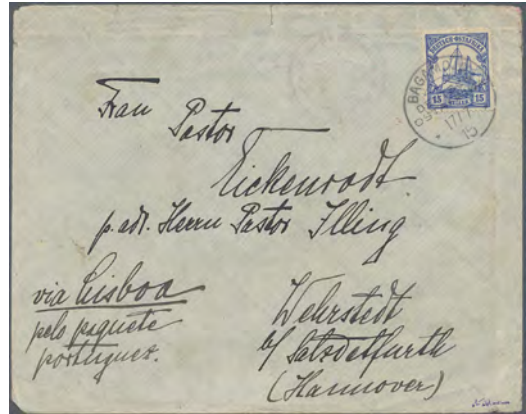 DEUTSCH-OSTAFRIKA
15 HELLER 15
BAGAMOYO
17/1
15
Frau
Pastor
Eickenrodt.
p. adr. Herrn Pastor Illing
via Lisboa
pelo paquete
portuguez.
Wehrstedt
b/ Salzdetfurth
(Hannover)